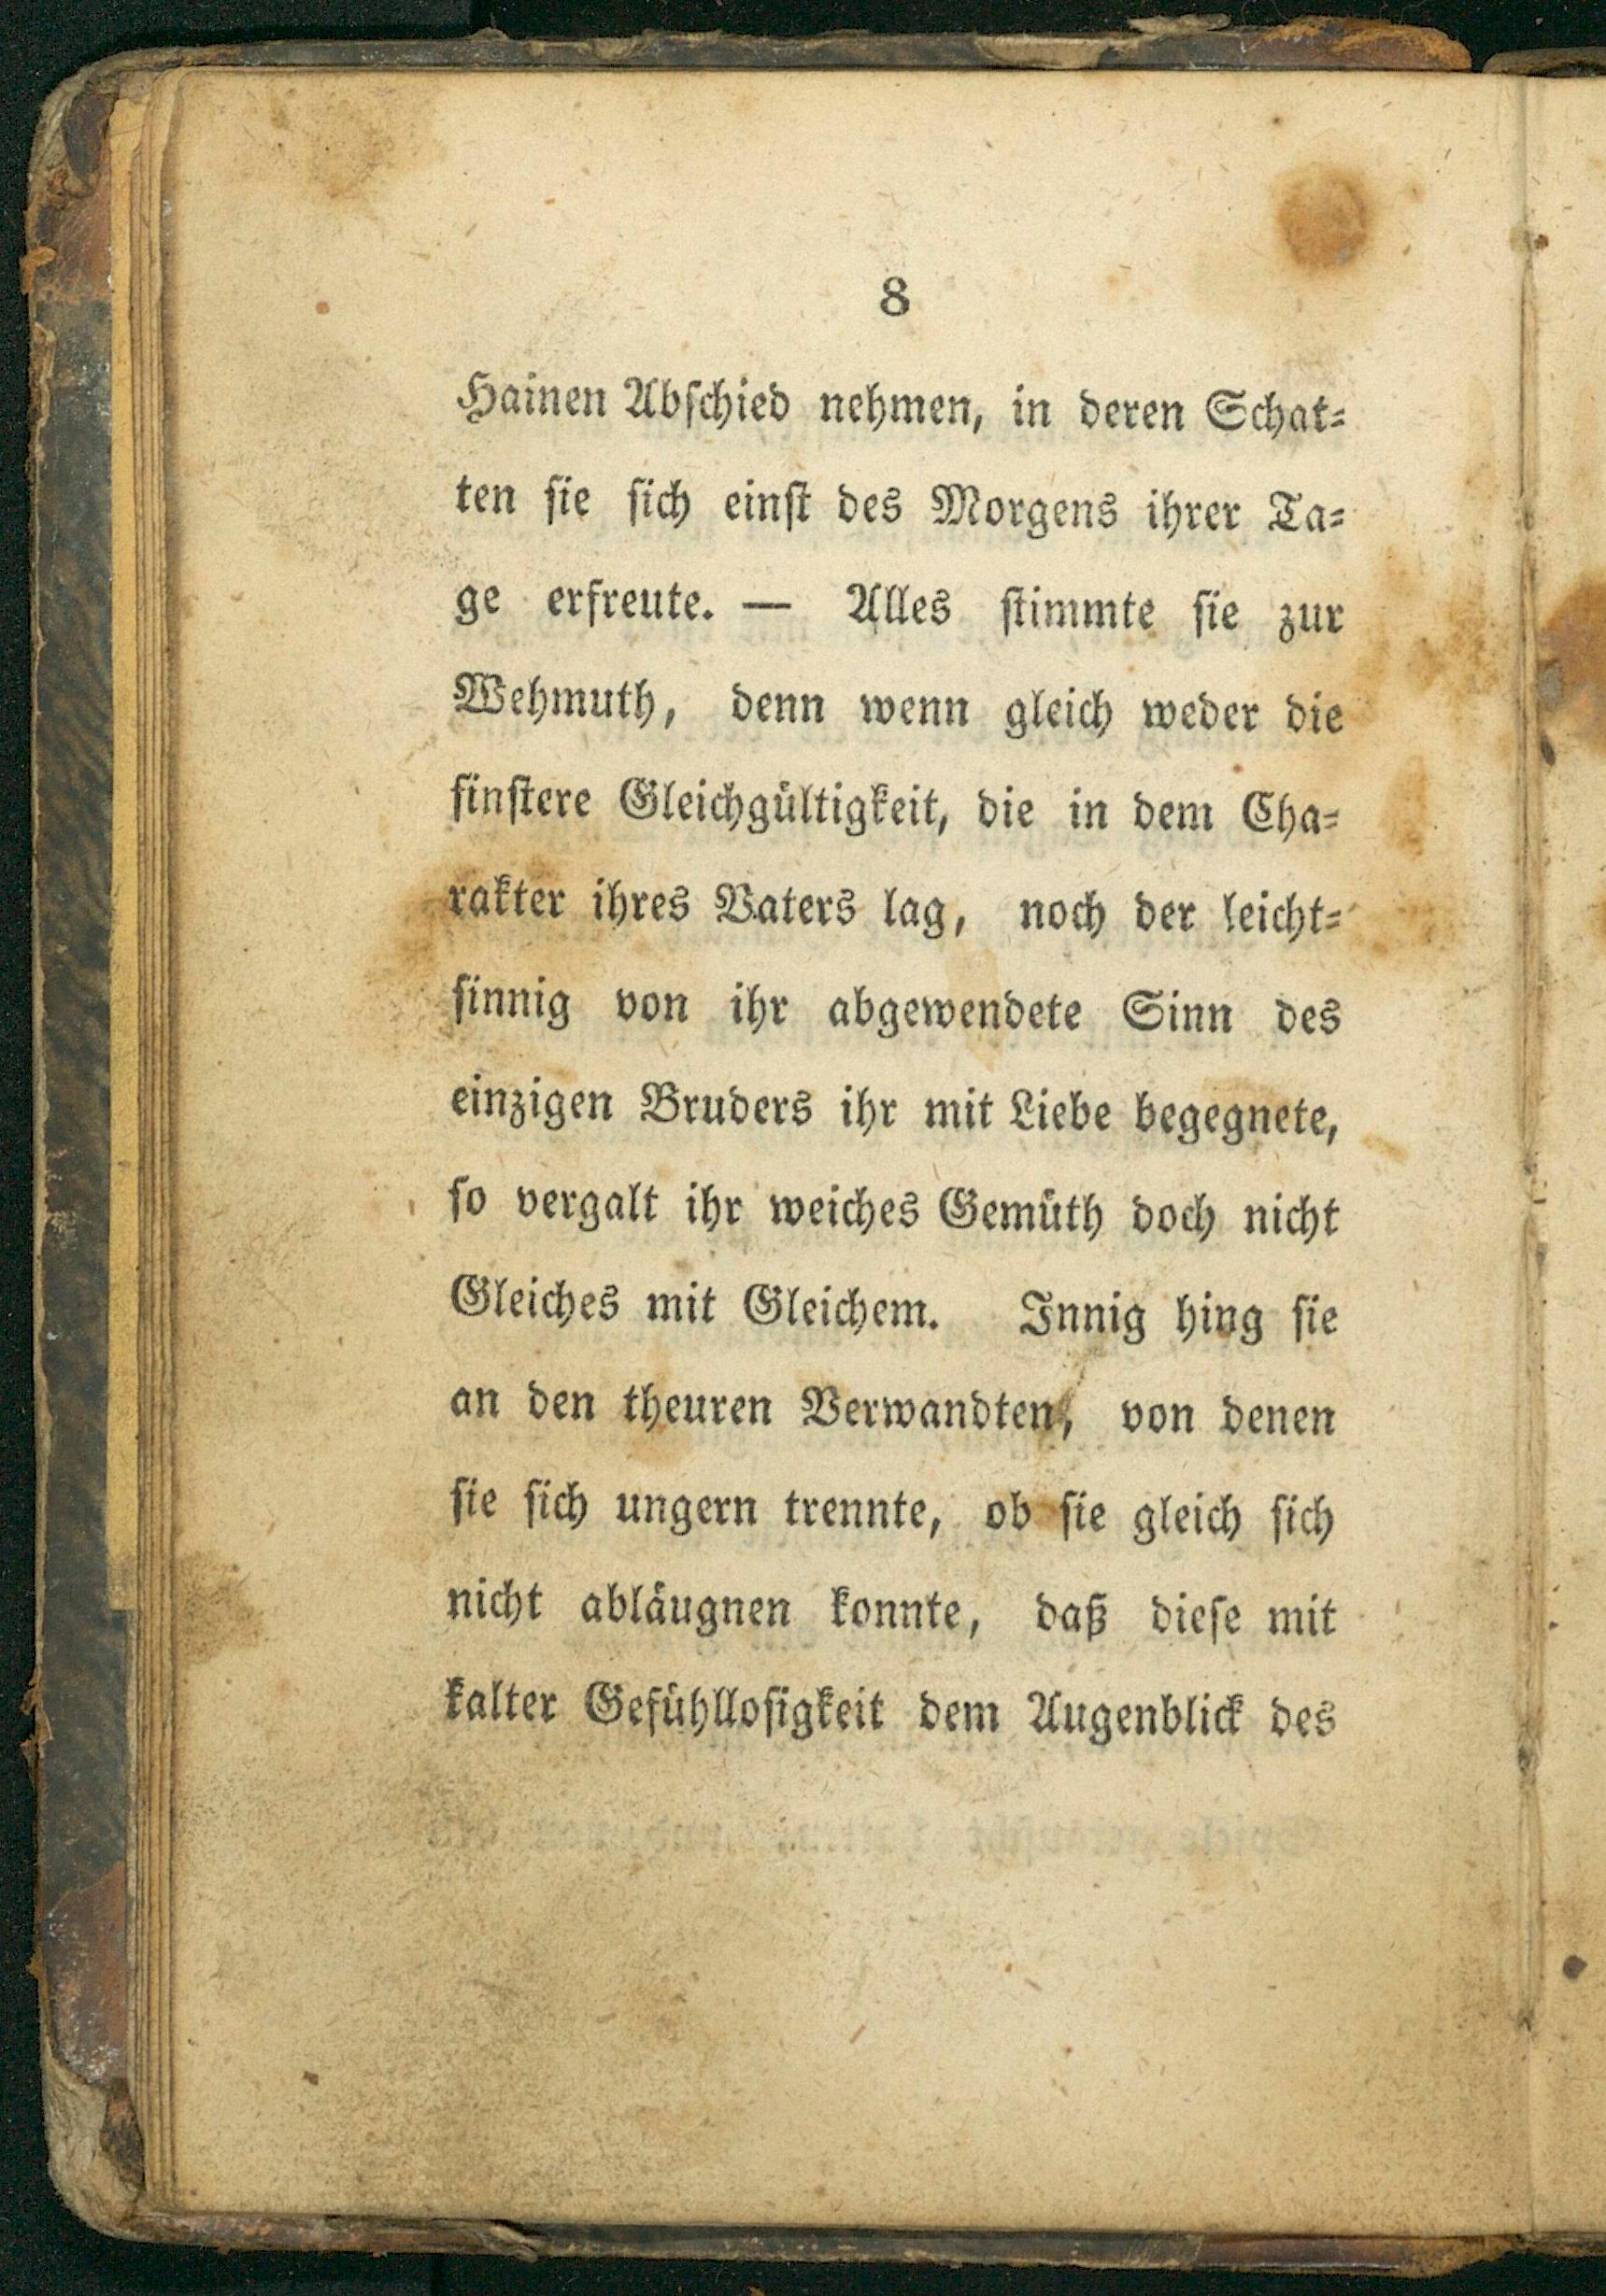 8
Hainen Abschied nehmen, in deren Schat-
ten sie sich einst des Morgens ihrer Ta-
ge erfreute. — Alles stimmte sie zur
Wehmuth, denn wenn gleich weder die
finstere Gleichgültigkeit, die in dem Cha-
rakter ihres Vaters lag, noch der leicht-
sinnig von ihr abgewendete Sinn des
einzigen Bruders ihr mit Liebe begegnete,
so vergalt ihr weiches Gemüth doch nicht
Gleiches mit Gleichem. Innig hing sie
an den theuren Verwandten, von denen
sie sich ungern trennte, ob sie gleich sich
nicht abläugnen konnte, daß diese mit
kalter Gefühllosigkeit dem Augenblick des